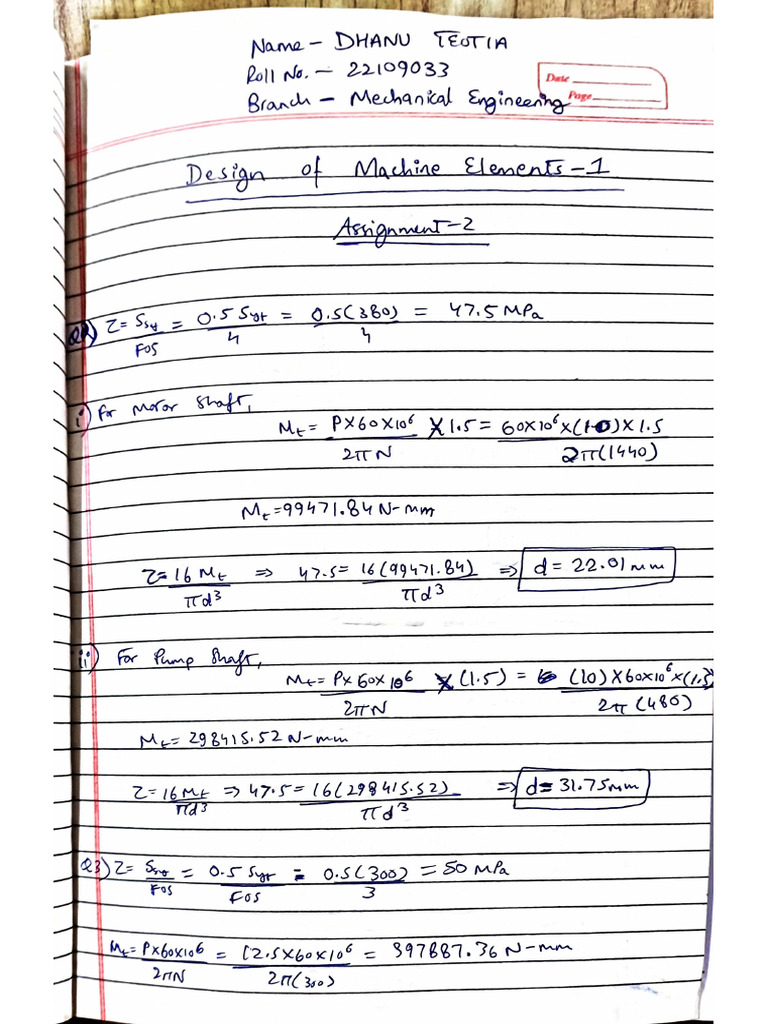 Name - DHANU TEOTIA
Roll No. - 22109033
Branch - Mechanical Engineering
Date
Page
Design of Machine Elements - 1
Assignment - 2
τ = Ssy/FOS = 0.5 Syt/4 = 0.5(380)/4 = 47.5 MPa
i) For Motor Shaft,
Mt = P×60×10⁶/2πN × 1.5 = 60×10⁶×(10)×1.5/2π(1440)
Mt = 99471.84 N-mm
τ = 16 Mt/πd³ ⇒ 47.5 = 16(99471.84)/πd³ ⇒ d = 22.01 mm
ii) For Pump Shaft,
Mt = P×60×10⁶/2πN × (1.5) = (10)×60×10⁶×(1.5)/2π(480)
Mt = 298415.52 N-mm
τ = 16Mt/πd³ ⇒ 47.5 = 16(298415.52)/πd³ ⇒ d = 31.75mm
Q3) τ = Ssy/FOS = 0.5 Syt/FOS = 0.5(300)/3 = 50 MPa
Mt = P×60×10⁶/2πN = 12.5×60×10⁶/2π(300) = 397887.36 N-mm